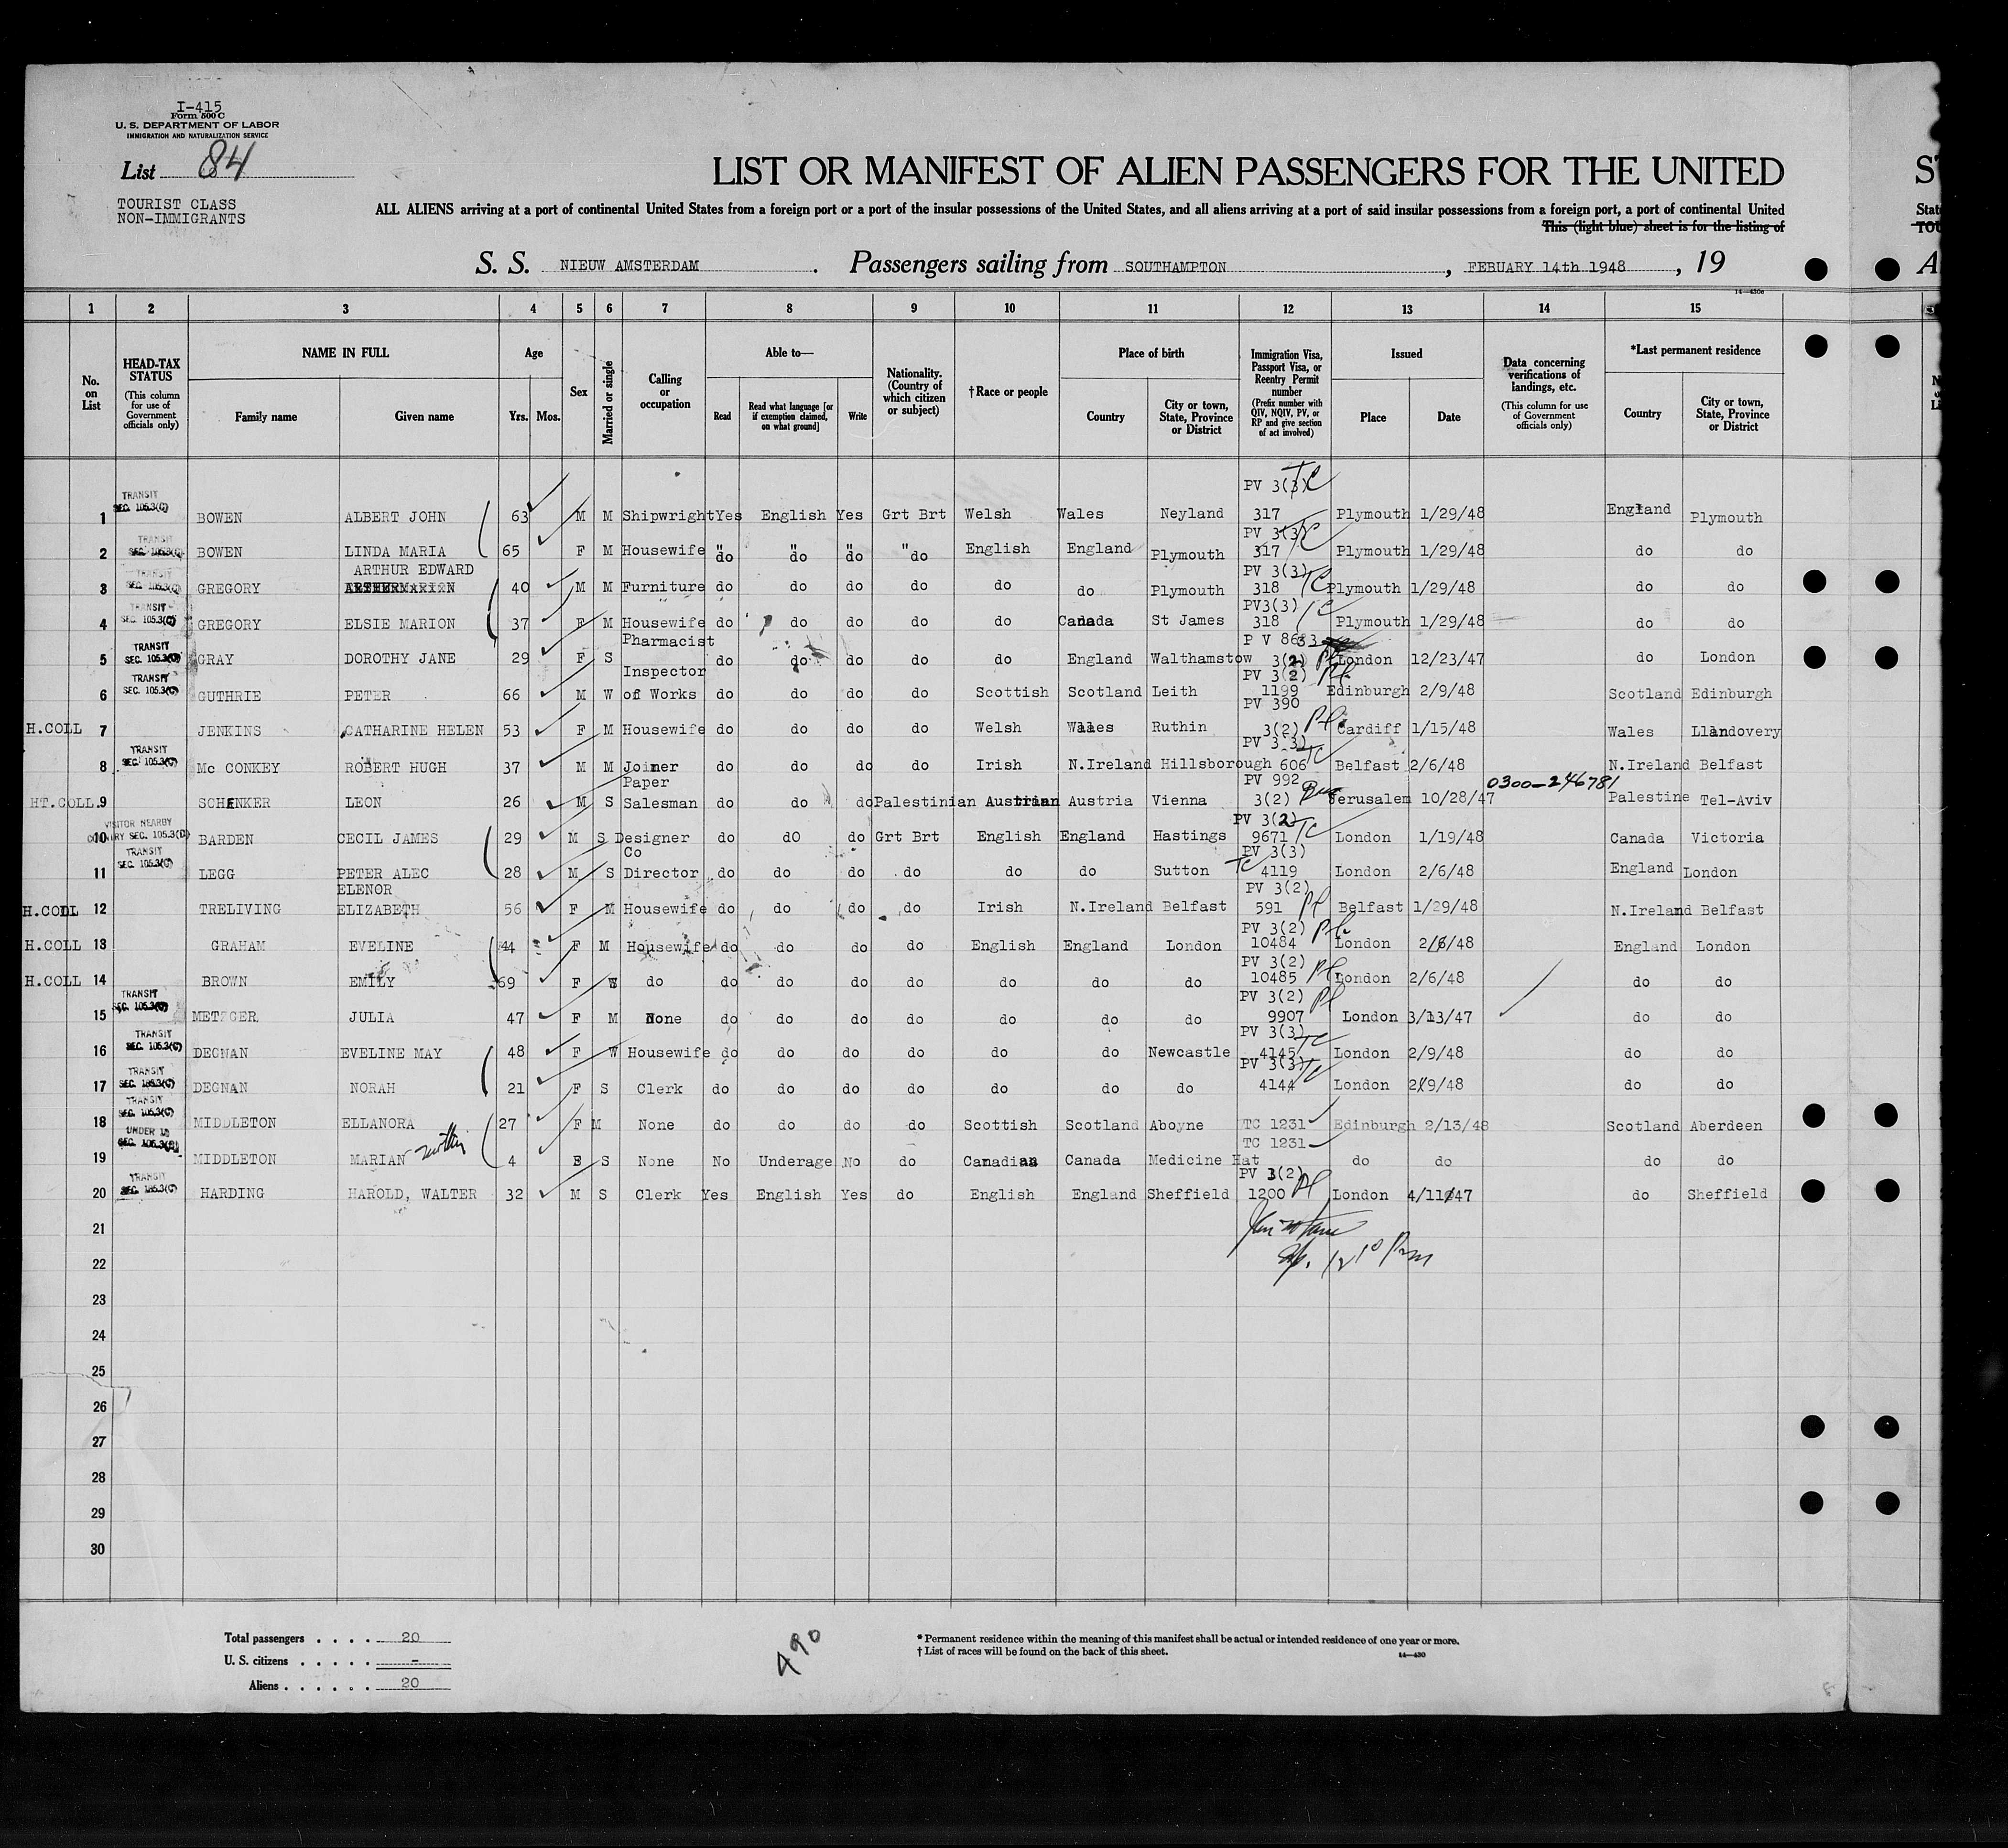 I-415
Form 500 C
U. S. DEPARTMENT OF LABOR
IMMIGRATION AND NATURALIZATION SERVICE
List 84
TOURIST CLASS
NON-IMMIGRANTS
LIST OR MANIFEST OF ALIEN PASSENGERS FOR THE UNITED
ALL ALIENS arriving at a port of continental United States from a foreign port or a port of the insular possessions of the United States, and all aliens arriving at a port of said insular possessions from a foreign port, a port of continental United
This (light blue) sheet is for the listing of
S. S. NIEUW AMSTERDAM . Passengers sailing from SOUTHAMPTON , FEBUARY 14th 1948 , 19
1 2 3 4 5 6 7 8 9 10 11 12 13 14 15
No. on List
HEAD-TAX STATUS (This column for use of Government officials only)
NAME IN FULL Family name Given name
Age Yrs. Mos.
Sex
Married or single
Calling or occupation
Able to— Read Read what language [or if exemption claimed, on what ground] Write
Nationality. (Country of which citizen or subject)
†Race or people
Place of birth Country City or town, State, Province or District
Immigration Visa, Passport Visa, or Reentry Permit number (Prefix number with QIV, NQIV, PV, or RP and give section of act involved)
Issued Place Date
Data concerning verifications of landings, etc. (This column for use of Government officials only)
*Last permanent residence Country City or town, State, Province or District
TRANSIT PV 3(3) TC
SEC. 105.3(C)
1 BOWEN ALBERT JOHN 63 M M Shipwright Yes English Yes Grt Brt Welsh Wales Neyland 317 Plymouth 1/29/48 England Plymouth
TRANSIT PV 3(3) TC
SEC. 105.3(C)
2 BOWEN LINDA MARIA 65 F M Housewife " do " do " do " do English England Plymouth 317 Plymouth 1/29/48 do do
TRANSIT ARTHUR EDWARD PV 3(3) TC
SEC. 105.3(C)
3 GREGORY 40 M M Furniture do do do do do do Plymouth 318 Plymouth 1/29/48 do do
TRANSIT PV3(3) TC
SEC. 105.3(C)
4 GREGORY ELSIE MARION 37 F M Housewife do do do do do Canada St James 318 Plymouth 1/29/48 do do
TRANSIT Pharmacist P V 8633
SEC. 105.3(C)
5 GRAY DOROTHY JANE 29 F S do do do do do England Walthamstow 3(2) London 12/23/47 do London
TRANSIT Inspector PV 3(2)
SEC. 105.3(C)
6 GUTHRIE PETER 66 M W of Works do do do do Scottish Scotland Leith 1199 Edinburgh 2/9/48 Scotland Edinburgh
PV 390
H.COLL 7 JENKINS CATHARINE HELEN 53 F M Housewife do do do do Welsh Wales Ruthin 3(2) Cardiff 1/15/48 Wales Llandovery
TRANSIT PV 3 3) TC
SEC. 105.3(C)
8 Mc CONKEY ROBERT HUGH 37 M M Joiner do do do do Irish N.Ireland Hillsborough 606 Belfast 2/6/48 N.Ireland Belfast
Paper PV 992 0300-246781
HT.COLL. 9 SCHENKER LEON 26 M S Salesman do do do Palestinian Austrian Austria Vienna 3(2) Jerusalem 10/28/47 Palestine Tel-Aviv
VISITOR NEARBY PV 3(2) TC
COUNTRY SEC. 105.3(D)
10 BARDEN CECIL JAMES 29 M S Designer do dO do Grt Brt English England Hastings 9671 London 1/19/48 Canada Victoria
TRANSIT Co PV 3(3) TC
SEC. 105.3(C)
11 LEGG PETER ALEC 28 M S Director do do do do do do Sutton 4119 London 2/6/48 England London
ELENOR PV 3(2)
H.COLL 12 TRELIVING ELIZABETH 56 F M Housewife do do do do Irish N.Ireland Belfast 591 Belfast 1/29/48 N.Ireland Belfast
PV 3(2)
H.COLL 13 GRAHAM EVELINE 44 F M Housewife do do do do English England London 10484 London 2/6/48 England London
PV 3(2)
H.COLL 14 BROWN EMILY 69 F W do do do do do do do do 10485 London 2/6/48 do do
TRANSIT PV 3(2)
SEC. 105.3(C)
15 METZGER JULIA 47 F M None do do do do do do do 9907 London 3/13/47 do do
TRANSIT PV 3(3) TC
SEC. 105.3(C)
16 DEGNAN EVELINE MAY 48 F W Housewife do do do do do do Newcastle 4145 London 2/9/48 do do
TRANSIT PV 3(3) TC
SEC. 105.3(C)
17 DEGNAN NORAH 21 F S Clerk do do do do do do do 4144 London 2/9/48 do do
TRANSIT
SEC. 105.3(C)
18 MIDDLETON ELLANORA 27 F M None do do do do Scottish Scotland Aboyne TC 1231 Edinburgh 2/13/48 Scotland Aberdeen
UNDER 16 TC 1231
SEC. 105.3(B)
19 MIDDLETON MARIAN 4 F S None No Underage No do Canadian Canada Medicine Hat do do do do
TRANSIT PV 3(2)
SEC. 105.3(C)
20 HARDING HAROLD, WALTER 32 M S Clerk Yes English Yes do English England Sheffield 1200 London 4/11/47 do Sheffield
21
22
23
24
25
26
27
28
29
30
Total passengers . . . . 20
U. S. citizens . . . . . -
Aliens . . . . . . 20
490
* Permanent residence within the meaning of this manifest shall be actual or intended residence of one year or more.
† List of races will be found on the back of this sheet.